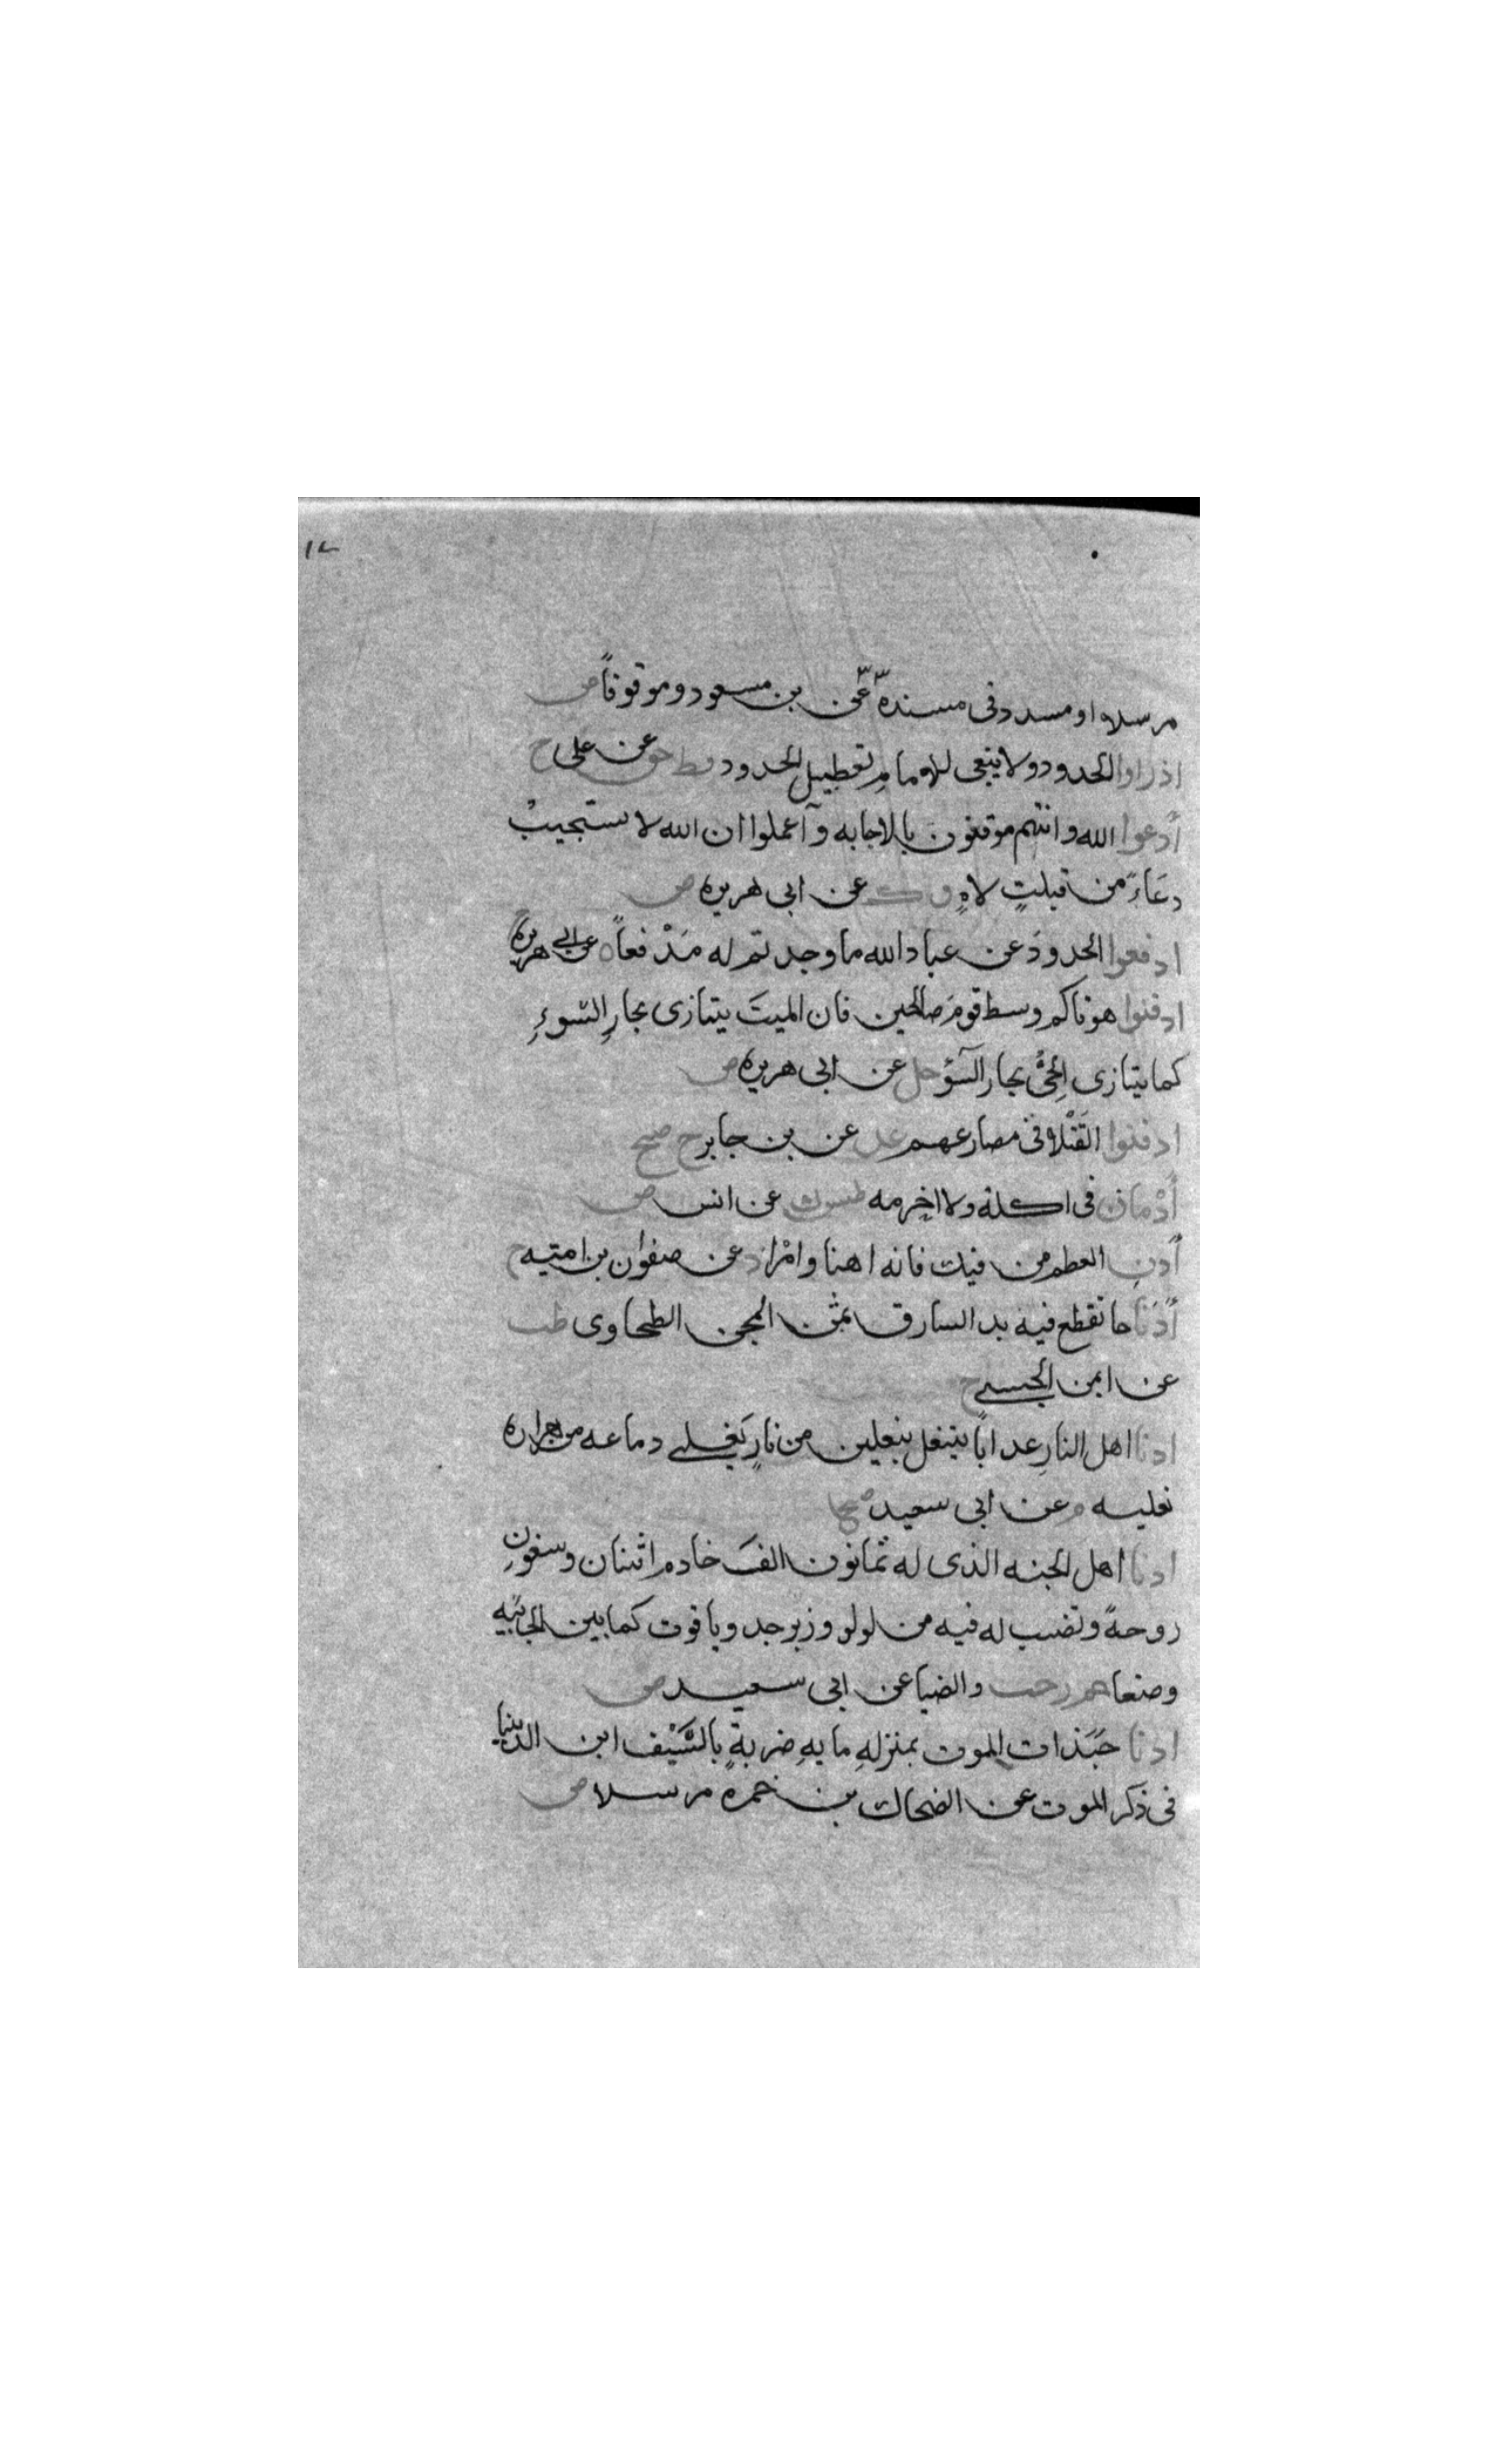 ١٢
مرسلا ومسدد فى مسنده عن بن مسعود وموقوفاً ض
ادراوا الحدود ولا ينبغى للامام تعطيل الحدود قط هق عن على ح
أدعوا الله وانتم موقنون بالاجابه وآعملوا ان الله لا ستجيب
دعَاءً من قبلتٍ لاهٍ ت ك عن ابى هريره ض
ادفعوا الحدودَ عن عباد الله ما وجدتم له مَدْفعاً ه عن ابى هريره ح
ادفنوا موتاكم وسط قوم صالحين فان الميتَ يتازى بجارِ السّوءِ
كما يتازى الحىُّ بجار السَوْ حل عن ابى هريره ض
ادفنوا القَتْلا فى مصارعهم عن بن جابر ح صح
أدْمان فى اكلة ولا اخرمه طس ك عن انس ض
أدنِ العظم من فيك فانه اهنا وامْرا د عن صفوان بن اميه ح
أدَنَا ما تقطع فيه يد السارق ثمن المجن الطحاوى طب
عن ايمن الحبسى ح
ادنا اهل النارِ عداباً ينتعل بنعلين من نارٍ يَغلى دماعه من حراره
نعليه م عن ابى سعيد صح
ادنا اهل الجنه الذى له ثمانون الفَ خادم اثنتان وسبعون
زوجةً وتضب له فيه من لولو وزبرجد وياقوت كما بين الجابيه
وصنعا حم ت حب والضيا عن ابى سعيد ض
ادنا جَبَذات الموت بمنزلهِ مايهِ ضربةٍ بالسَّيْف ابن الدينا
فى ذكر الموت عن الضحاك بن حمره مرسلا ض